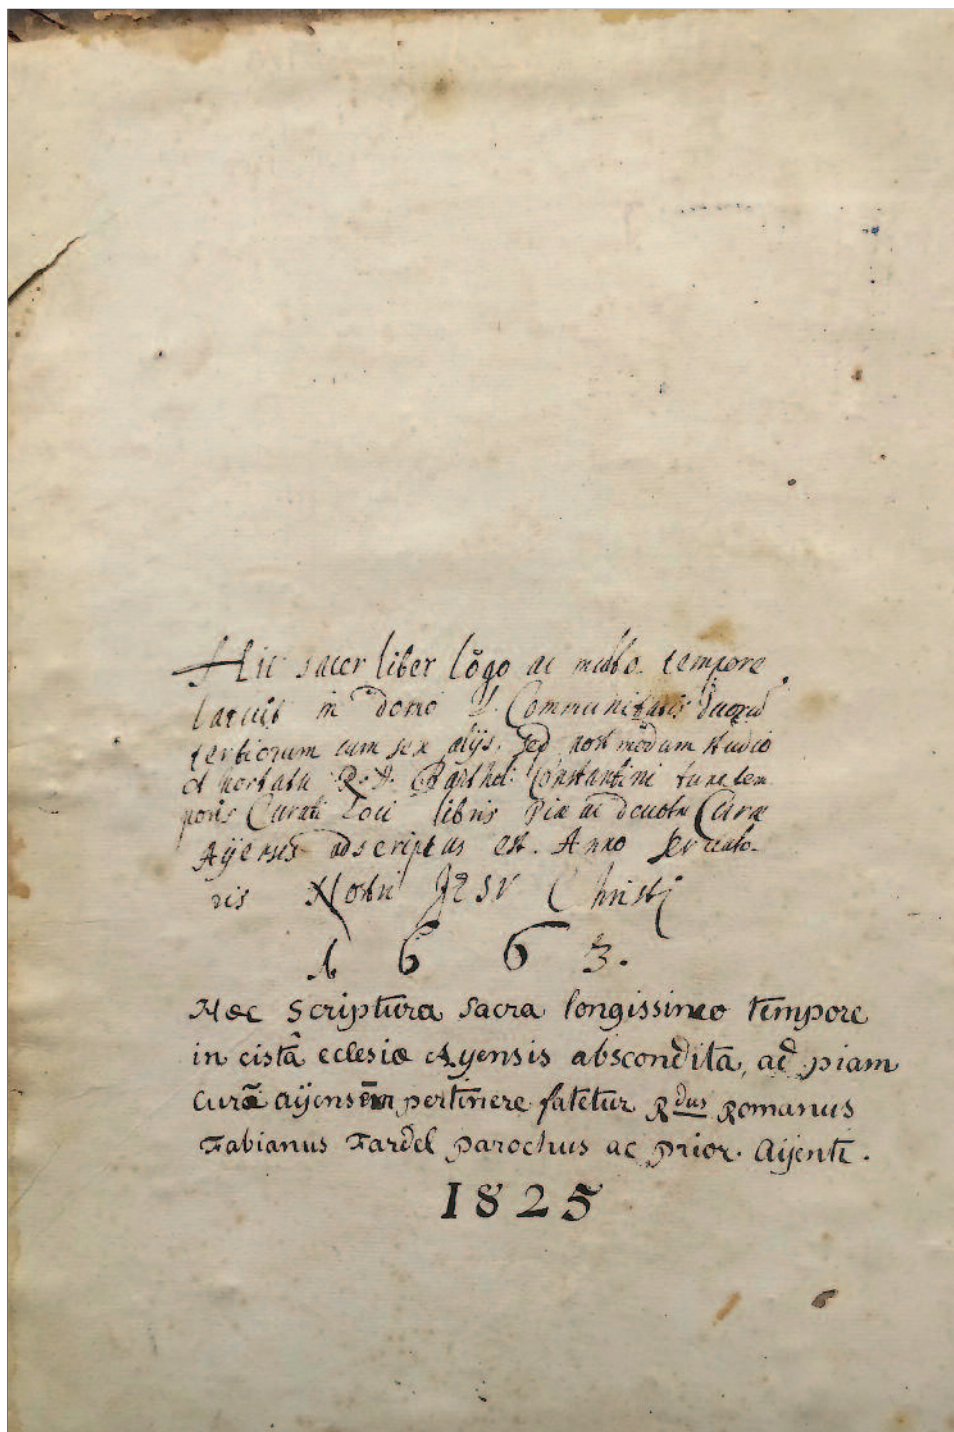 Hic sacer liber lõgo ac multo tempore
latuit in domo V. Communitatis duorũ
tertiorum cum sex alijs, sed post modum studio
et hortatu R. D. Barthol: Constantini tunc tem
poris Curati Loci libris Piæ ac devotæ Curæ
Ayensis adscriptus est. Anno Servato-
ris Nostri Jesv Christi
1663.
Hæc Scriptura Sacra longissimo tempore
in cistâ eclesiæ Ayensis abscondita, ad piam
curã aÿensem pertinere fatetur Rdus Romanus
Fabianus Fardel parochus ac prior Aÿenti.
1825